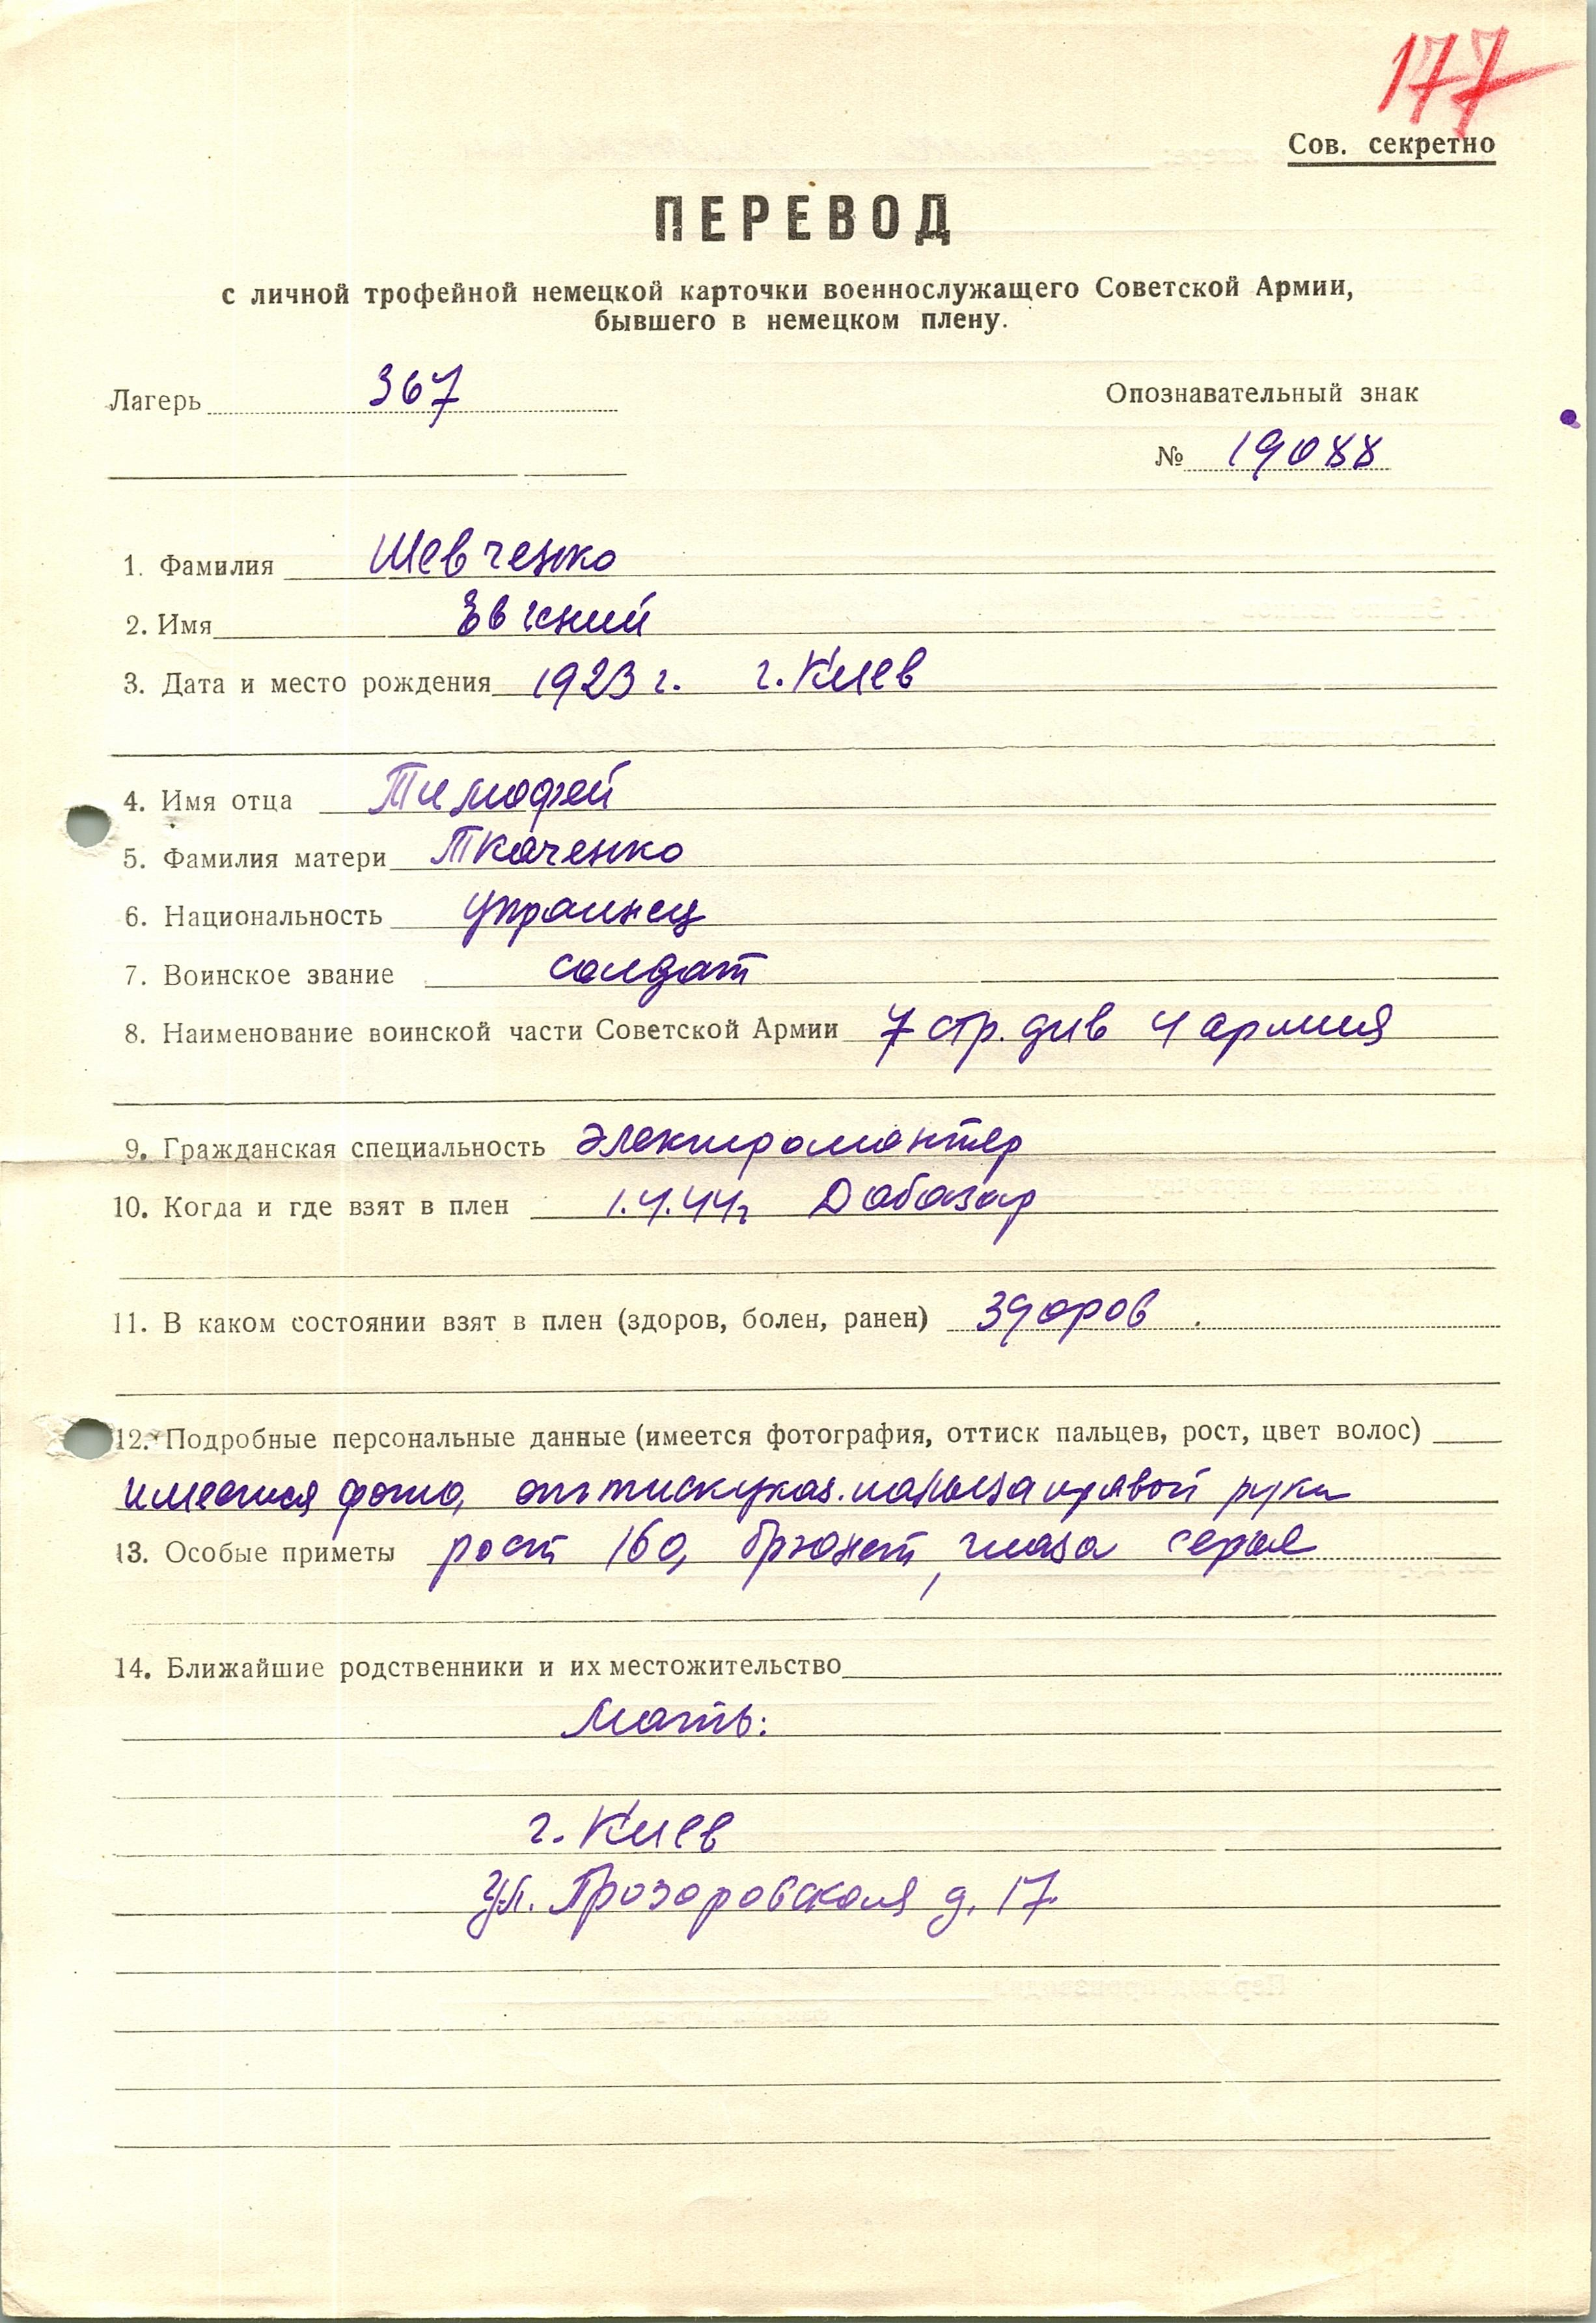 177
Сов. секретно
ПЕРЕВОД
с личной трофейной немецкой карточки военнослужащего Советской Армии,
бывшего в немецком плену.
Лагерь 367
Опознавательный знак
№ 19088
1. Фамилия Шевченко
2. Имя Евгений
3. Дата и место рождения 1923 г. г. Киев
4. Имя отца Тимофей
5. Фамилия матери Ткаченко
6. Национальность украинец
7. Воинское звание солдат
8. Наименование воинской части Советской Армии 7 стр. див 4 армия
9. Гражданская специальность электромонтер
10. Когда и где взят в плен 1.4.44г Дабазар
11. В каком состоянии взят в плен (здоров, болен, ранен) здоров.
12. Подробные персональные данные (имеется фотография, оттиск пальцев, рост, цвет волос)
имеется фото, оттиск указ. пальца правой руки
13. Особые приметы рост 160, брюнет, глаза серые
14. Ближайшие родственники и их местожительство
Мать:
г. Киев
ул. Прозоровская д. 17